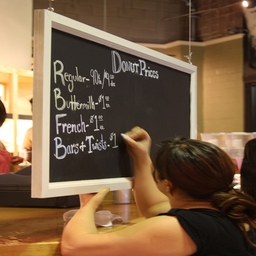 Donut Prices
Regular - 90¢/$9.00
Buttermilk - $1.00
French - $1.00
Bars & Twists - $1